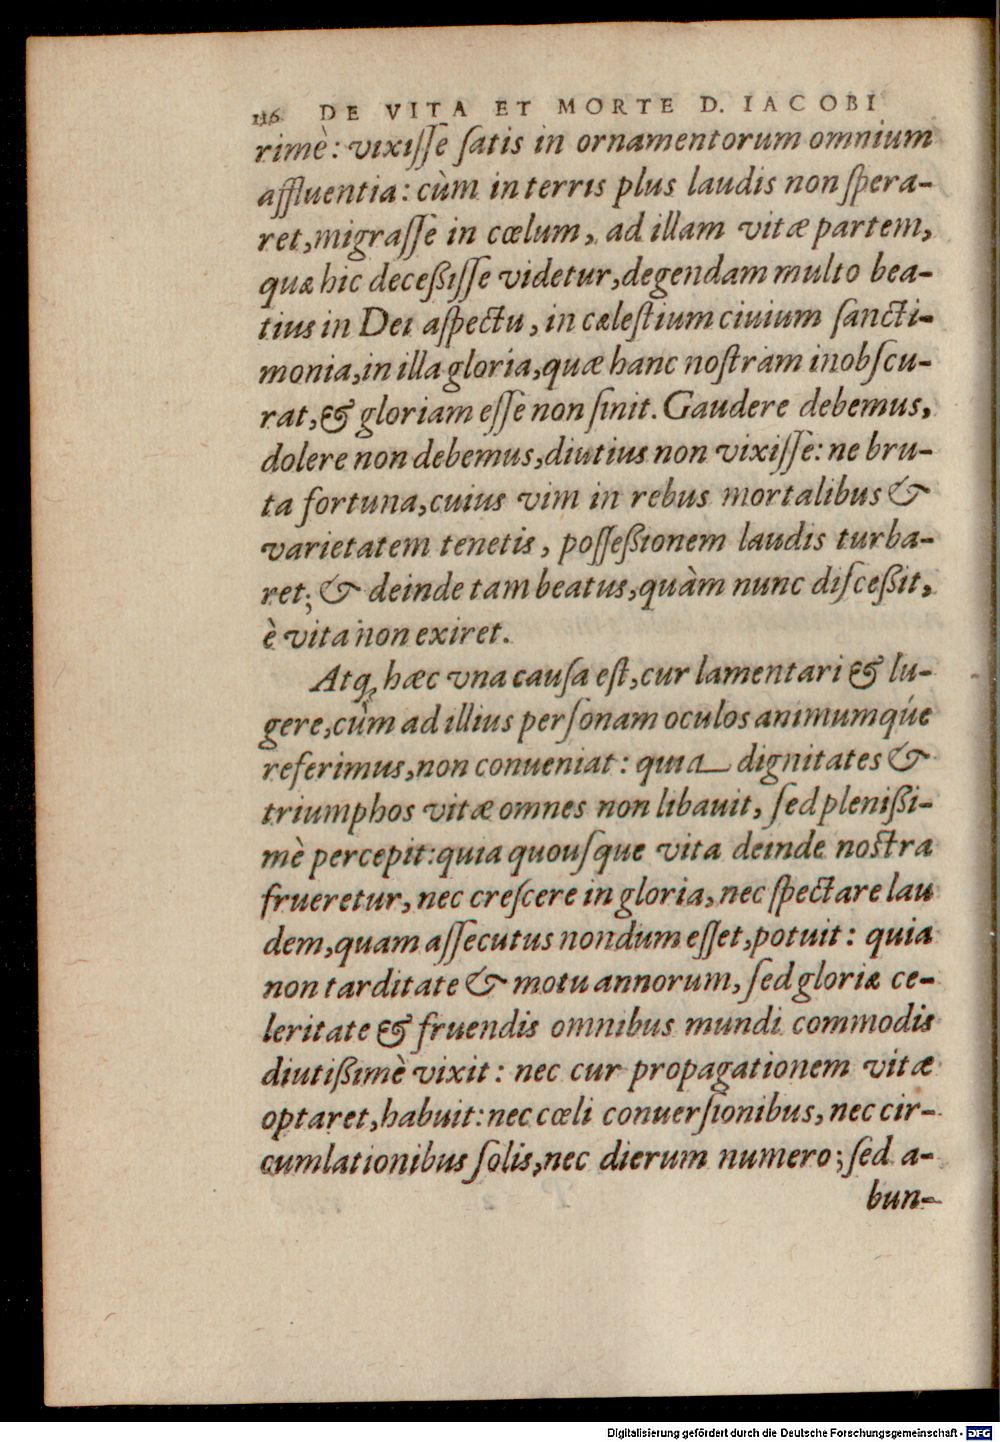 116 DE VITA ET MORTE D. IACOBI
rimè: vixiſſe ſatis in ornamentorum omnium
affluentia: cùm in terris plus laudis non ſpera-
ret, migraſſe in cœlum, ad illam vitæ partem,
quæ hic deceßiſſe videtur, degendam multo bea-
tius in Dei aſpectu, in cæleſtium ciuium ſancti-
monia, in illa gloria, quæ hanc noſtram inobſcu-
rat, & gloriam eſſe non ſinit. Gaudere debemus,
dolere non debemus, diutius non vixiſſe: ne bru-
ta fortuna, cuius vim in rebus mortalibus &
varietatem tenetis, poſſeßionem laudis turba-
ret; & deinde tam beatus, quàm nunc diſceßit,
è vita non exiret.
Atq; hæc vna cauſa eſt, cur lamentari & lu-
gere, cùm ad illius perſonam oculos animumque
referimus, non conueniat: quia dignitates &
triumphos vitæ omnes non libauit, ſed plenißi-
mè percepit: quia quouſque vita deinde noſtra
frueretur, nec creſcere in gloria, nec ſpectare lau
dem, quam aſſecutus nondum eſſet, potuit: quia
non tarditate & motu annorum, ſed gloriæ ce-
leritate & fruendis omnibus mundi commodis
diutißimè vixit: nec cur propagationem vitæ
optaret, habuit: nec cœli conuerſionibus, nec cir-
cumlationibus ſolis, nec dierum numero; ſed a-
bun-
Digitalisierung gefördert durch die Deutsche Forschungsgemeinschaft - DFG